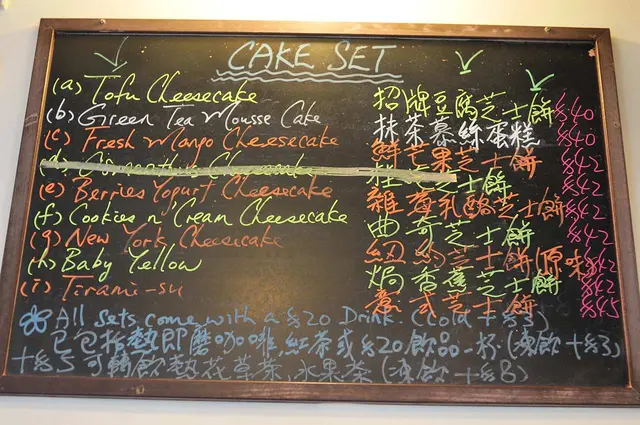 CAKE SET
(a) Tofu Cheesecake 招牌豆腐芝士餅 $40
(b) Green Tea Mousse Cake 抹茶慕絲蛋糕 $40
(c) Fresh Mango Chesesecake 鮮芒果芝士餅 $42
芝士餅 $42
(e) Berries Yogurt Cheesecake 雜莓乳酪芝士餅 $42
(f) Cookies n' Cream Cheesecake 曲奇芝士餅 $42
(g) New York Cheesecake 紐約芝士餅(原味) $42
(h) Baby Yellow 焗香蕉芝士餅 $42
(i) Tirami-su 意式芝士餅 $45
All Sets come with a $20 Drink. (Cold +$3)
已包括熱即磨咖啡紅茶或$20飲品一杯(凍飲+$3)
+$5可轉飲熱花草茶,水果茶(凍飲+$8)